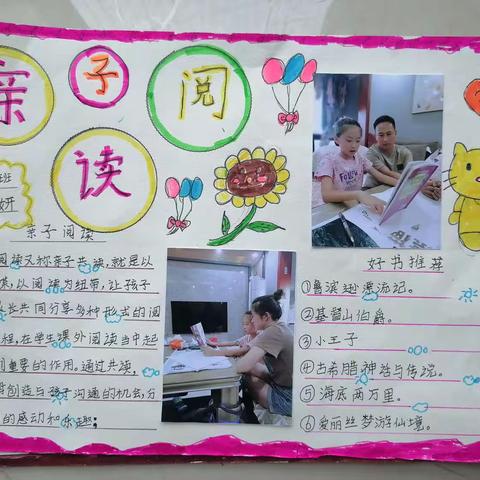 亲子阅读
班
妍
亲子阅读
阅读又称亲子共读,就是以
以阅读为纽带,让孩子
共同分享多种形式的阅
程,在学生课外阅读当中起
重要的作用,通过共读,
创造与孩子沟通的机会,分
的感动和乐趣;
好书推荐
①鲁滨逊漂流记。
②基督山伯爵。
③小王子
④古希腊神话与传说。
⑤海底两万里。
⑥爱丽丝梦游仙境。